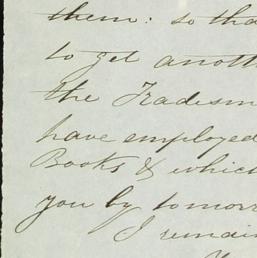 them: so tha
to get anoth
the Tradesm
have employed
Books & which
you by tomorr
I remain